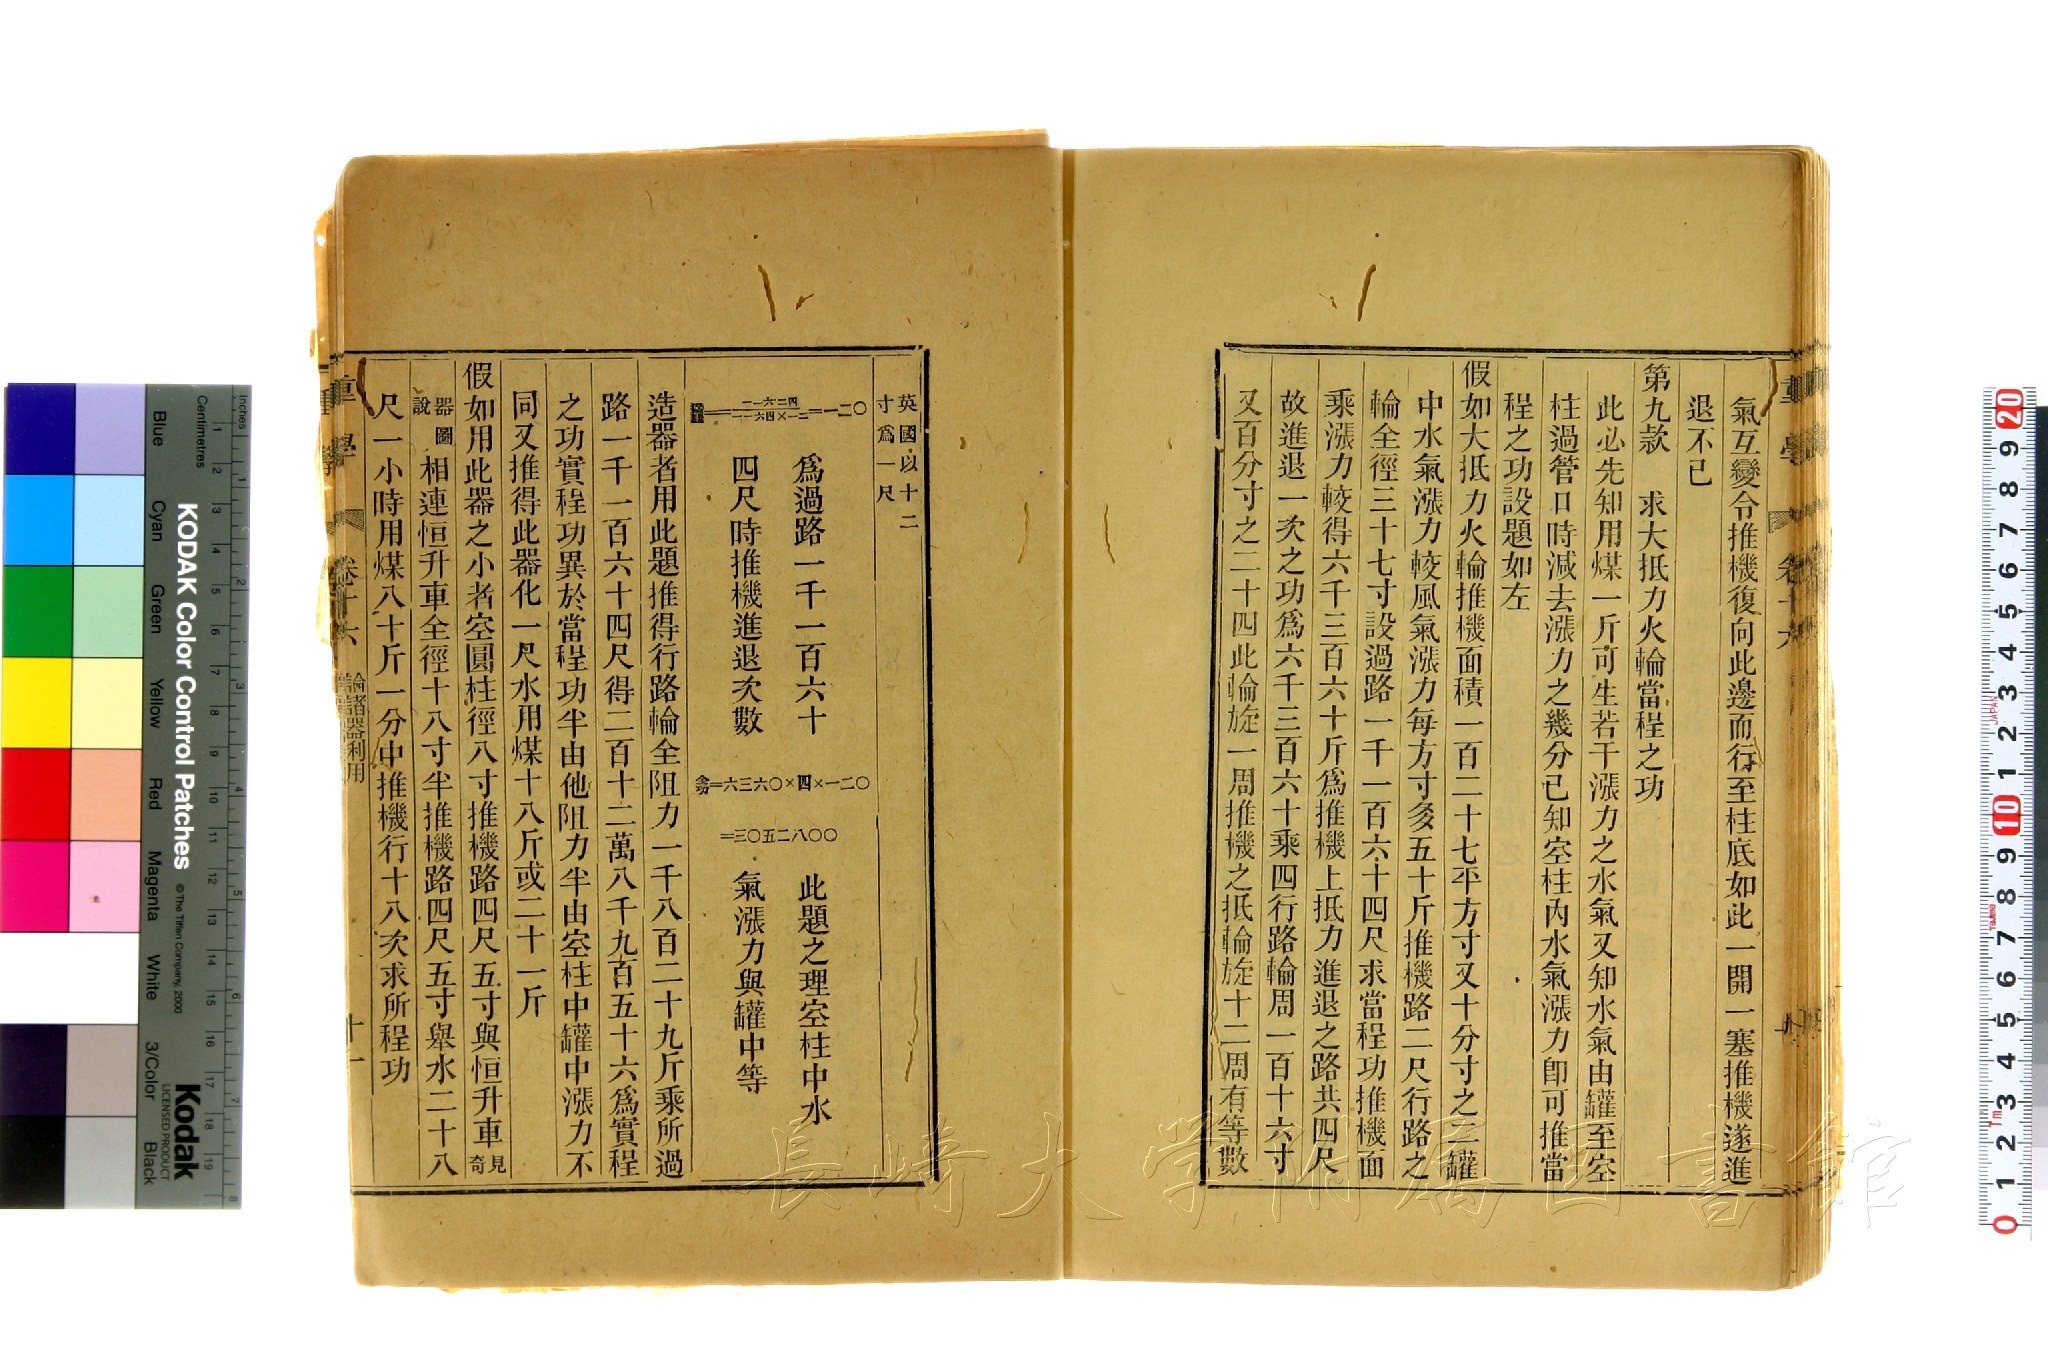 氣互變令推機復向此邊而行至柱底如此一開一塞推機遂進
退不已
第九款　求大抵力火輪當程之功
此必先知用煤一斤可生若干漲力之水氣又知水氣由罐至空
柱過管口時減去漲力之幾分已知空柱內水氣漲力卽可推當
程之功設題如左
假如大抵力火輪推機面積一百二十七平方寸又十分寸之二罐
中水氣漲力較風氣漲力每方寸多五十斤推機路二尺行路之
輪全徑三十七寸設過路一千一百六十四尺求當程功推機面
乘漲力較得六千三百六十斤爲推機上抵力進退之路共四尺
故進退一次之功爲六千三百六十乘四行路輪周一百十六寸
又百分寸之二十四此輪旋一周推機之抵輪旋十二周有等數
英國以十二
寸爲一尺
爲過路一千一百六十
四尺時推機進退次數
一二〇×四×六三六〇
＝三〇五二八〇〇
此題之理空柱中水
氣漲力與罐中等
造器者用此題推得行路輪全阻力一千八百二十九斤乘所過
路一千一百六十四尺得二百十二萬八千九百五十六爲實程
之功實程功異於當程功半由他阻力半由空柱中罐中漲力不
同又推得此器化一尺水用煤十八斤或二十一斤
假如用此器之小者空圓柱徑八寸推機路四尺五寸與恒升車見奇
器圖說相連恒升車全徑十八寸半推機路四尺五寸舉水二十八
尺一小時用煤八十斤一分中推機行十八次求所程功
重學
卷十六
論諸器利用
十一
重學
長崎大学附属図書館
KODAK Color Control Patches
© The Tiffen Company, 2000
Kodak
LICENSED PRODUCT
Inches
Centimetres
Blue
Cyan
Green
Yellow
Red
Magenta
White
3/Color
Black
JAPAN